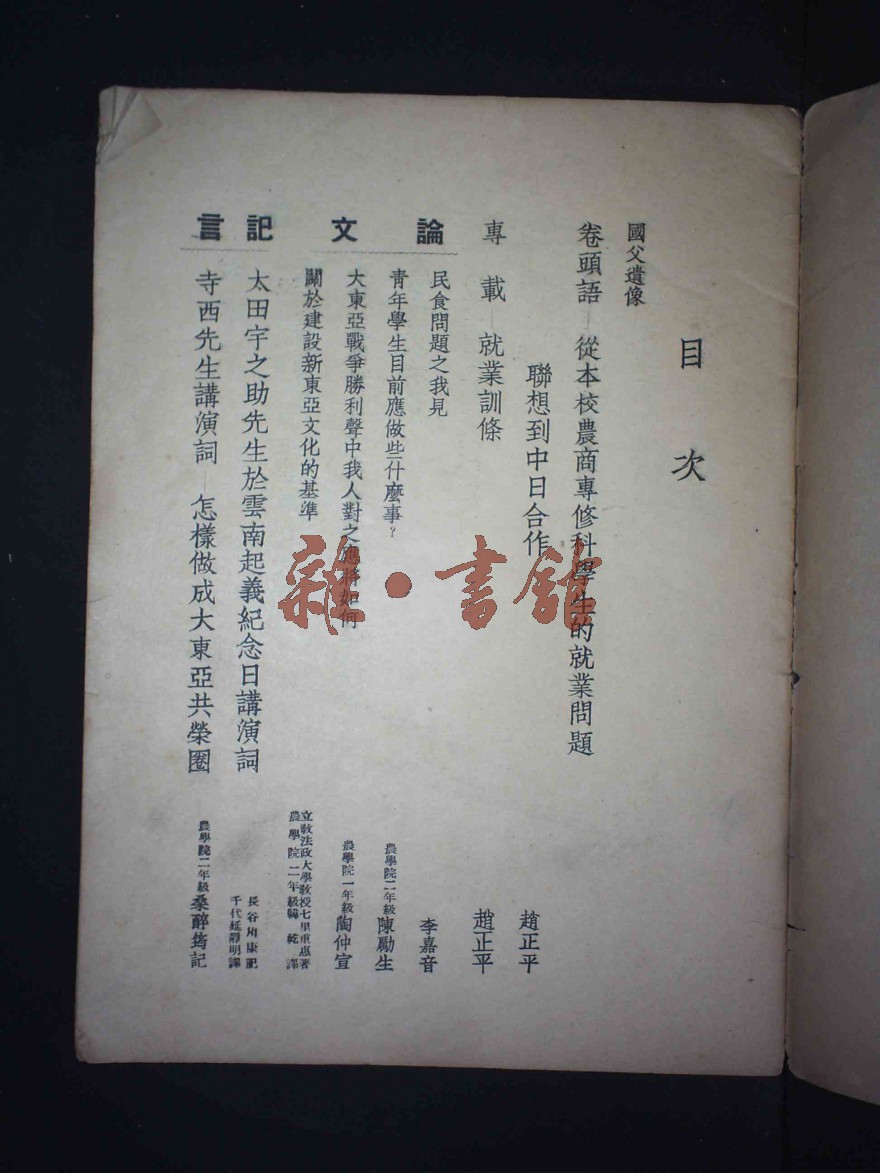 目次
國父遺像
卷頭語—從本校農商專修科學生的就業問題
聯想到中日合作 趙正平
專載—就業訓條 趙正平
論文
民食問題之我見 李嘉音
青年學生目前應做些什麼事? 農學院二年級陳勵生
大東亞戰爭勝利聲中我人對之應將如何 農學院一年級陶仲宣
關於建設新東亞文化的基準 立教法政大學教授七里重惠著
農學院二年級韓乾譯
記言
太田宇之助先生於雲南起義紀念日講演詞 長谷川康記
千代延靜明譯
寺西先生講演詞—怎樣做成大東亞共榮圈 農學院二年級桑醉筠記
雜·書館